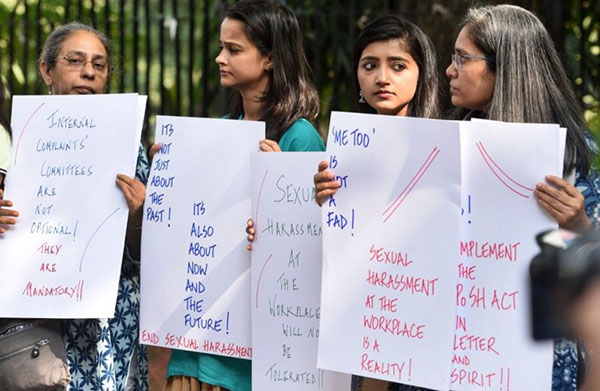 INTERNAL
COMPLAINTS'
COMMITTEES
ARE
NOT
OPTIONAL!
THEY
ARE
MANDATORY!!
ITS
NOT
JUST
ABOUT
THE
PAST!
ITS
ALSO
ABOUT
NOW
AND
THE
FUTURE!
END SEXUAL HARASSMENT
SEXUAL
HARASSMENT
AT
THE
WORKPLACE
WILL NOT
BE
TOLERATED!!
'ME TOO'
IS
NOT
A
FAD!
SEXUAL
HARASSMENT
AT THE
WORKPLACE
IS A
REALITY!
!
IMPLEMENT
THE
PoSH ACT
IN
LETTER
AND
SPIRIT!!